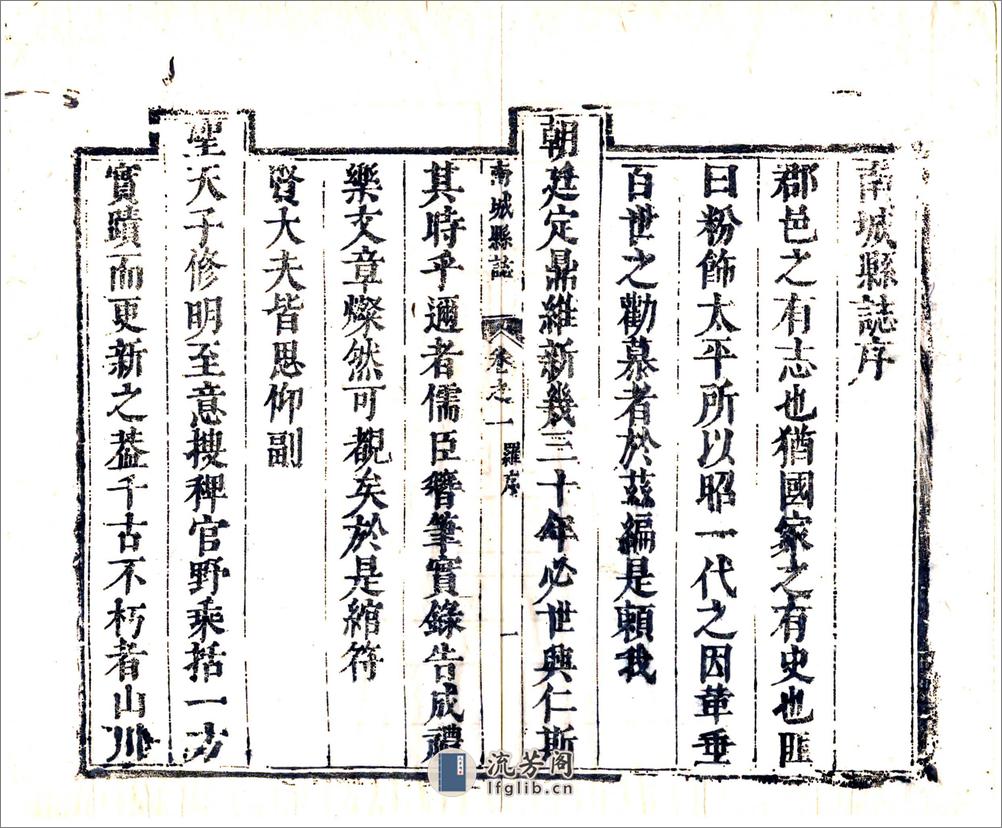 南城縣誌序
郡邑之有志也猶國家之有史也匪
曰粉飾太平所以昭一代之因革垂
百世之勸慕者於茲編是賴我
朝廷定鼎維新幾三十年必世興仁斯
南城縣誌 卷之一 羅序 一
其時乎邇者儒臣簪筆實錄告成禮
樂文章燦然可覩矣於是綰符
賢大夫皆思仰副
聖天子修明至意搜稗官野乘括一方
實蹟而更新之葢千古不朽者山川
流芳阁
lfglib.cn